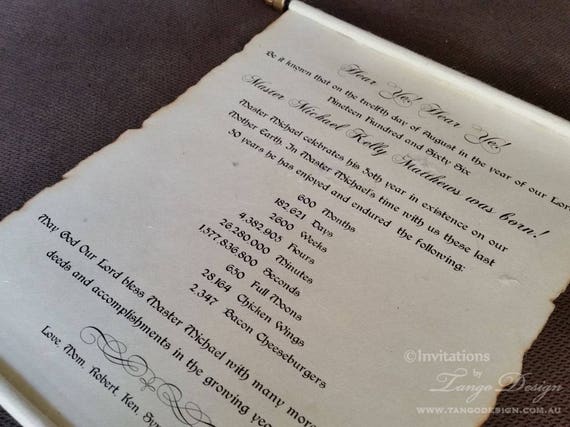 Hear Ye! Hear Ye!
Be it known that on the twelfth day of August in the year of our Lord
Nineteen Hundred and Sixty Six
Master Michael Kelly Matthews was born!
Master Michael celebrates his 50th year in existence on our
Mother Earth. In Master Michael's time with us these last
50 years he has enjoyed and endured the following:
600 Months
182,621 Days
2600 Weeks
4,382,905 Hours
26,280,000 Minutes
1,577,836,800 Seconds
650 Full Moons
28,164 Chicken Wings
2,347 Bacon Cheeseburgers
May God Our Lord bless Master Michael with many more
deeds and accomplishments in the growing
Love Mom, Robert, Ken,
©Invitations
by
Tango Design
WWW.TANGODESIGN.COM.AU